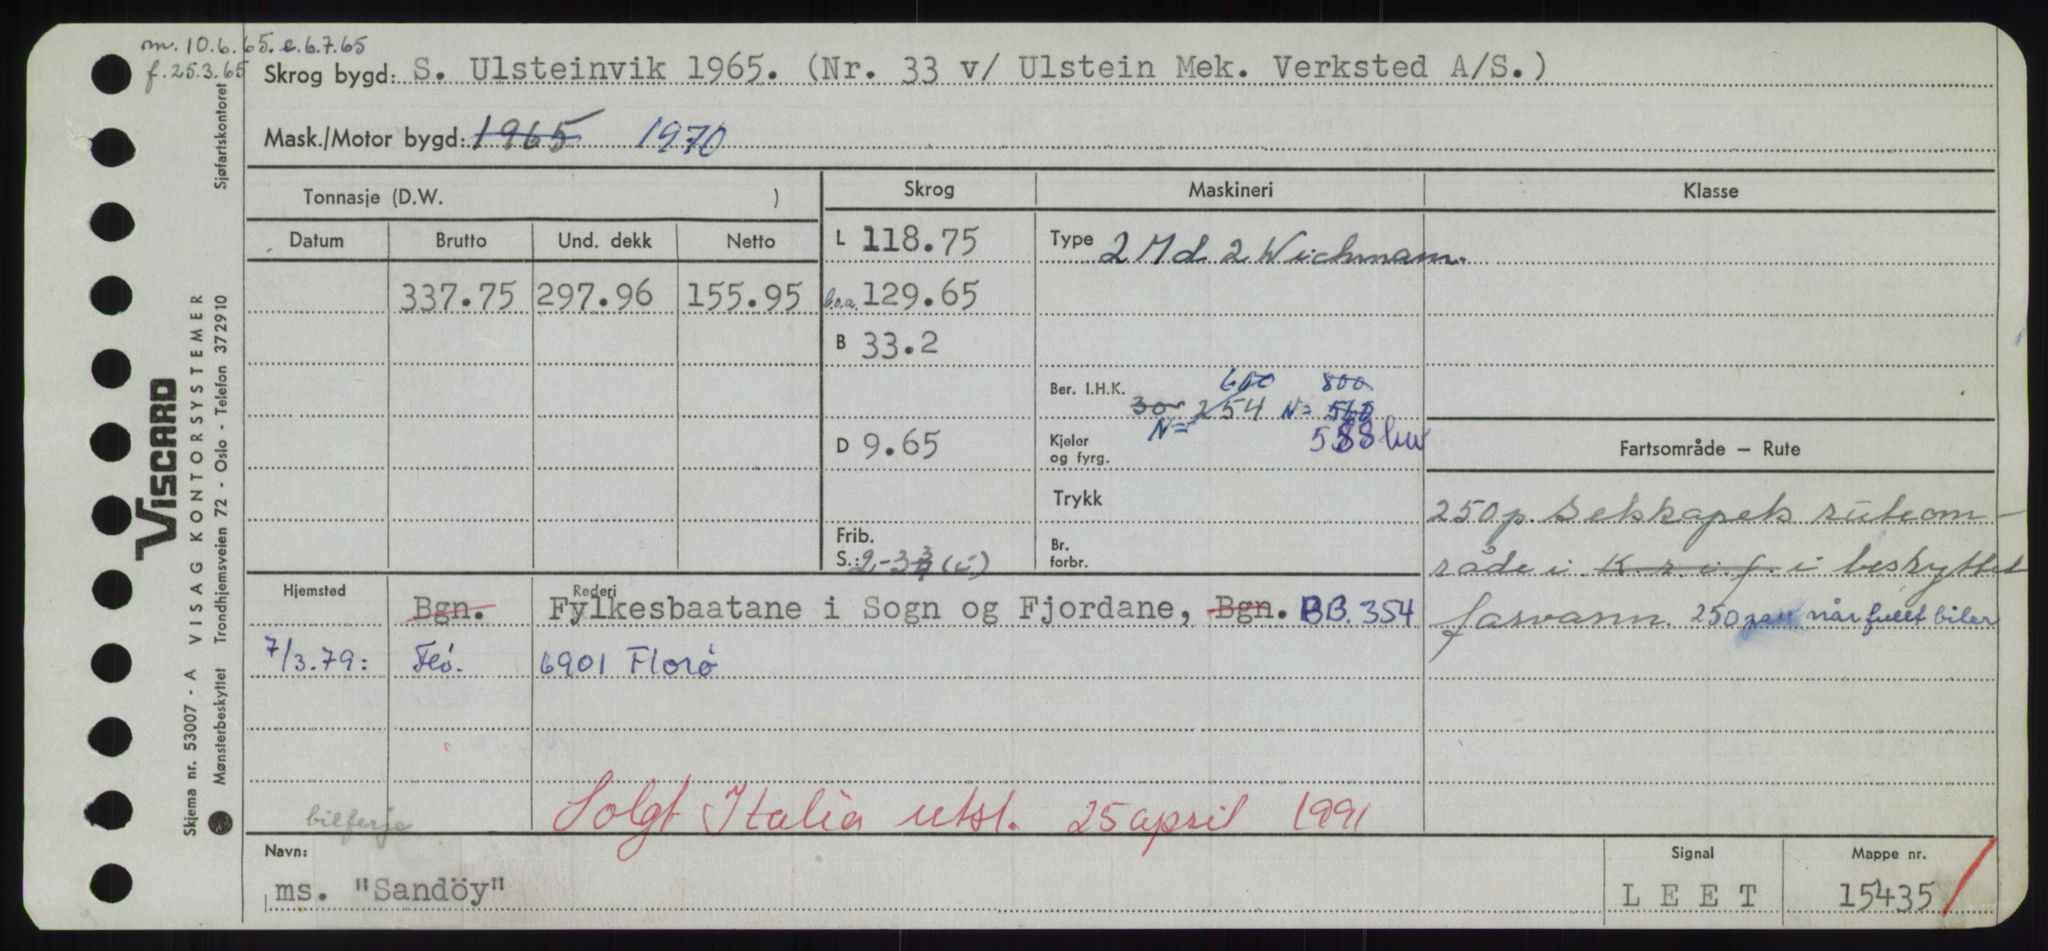 m. 10.6.65. e.6.7.65
f. 25.3.65
Skrog bygd: S. Ulsteinvik 1965. (Nr. 33 v/ Ulstein Mek. Verksted A/S.)
Mask./Motor bygd: 1965 1970
Tonnasje (D.W. )
Skrog Maskineri Klasse
Datum Brutto Und. dekk Netto
L 118.75 Type 2 Md 2 Wichmann.
337.75 297.96 155.95 l.o.a. 129.65
B 33.2
Ber. I.H.K. 600 800
300 254 N= 560
N=
D 9.65 Kjeler og fyrg. 588 kw
Fartsområde – Rute
Trykk
250 p. Selskapets ruteom-
Frib. S.: 2-3¾ (i) Br. forbr.
råde i K.s.i.f. i beskyttet
farvann. 250 pass når fullt biler
Hjemsted Rederi
Bgn. Fylkesbaatane i Sogn og Fjordane, Bgn. BB. 354
7/3.79: Flö. 6901 Florø
bilferje
Solgt Italia utsl. 25 april 1991
Navn: Signal Mappe nr.
ms. "Sandöy" LEET 15435
VISCARD
VISAG KONTORSYSTEMER
Skjema nr. 53007 - A
Mønsterbeskyttet Trondhjemsveien 72 - Oslo - Telefon 372910 Sjøfartskontoret